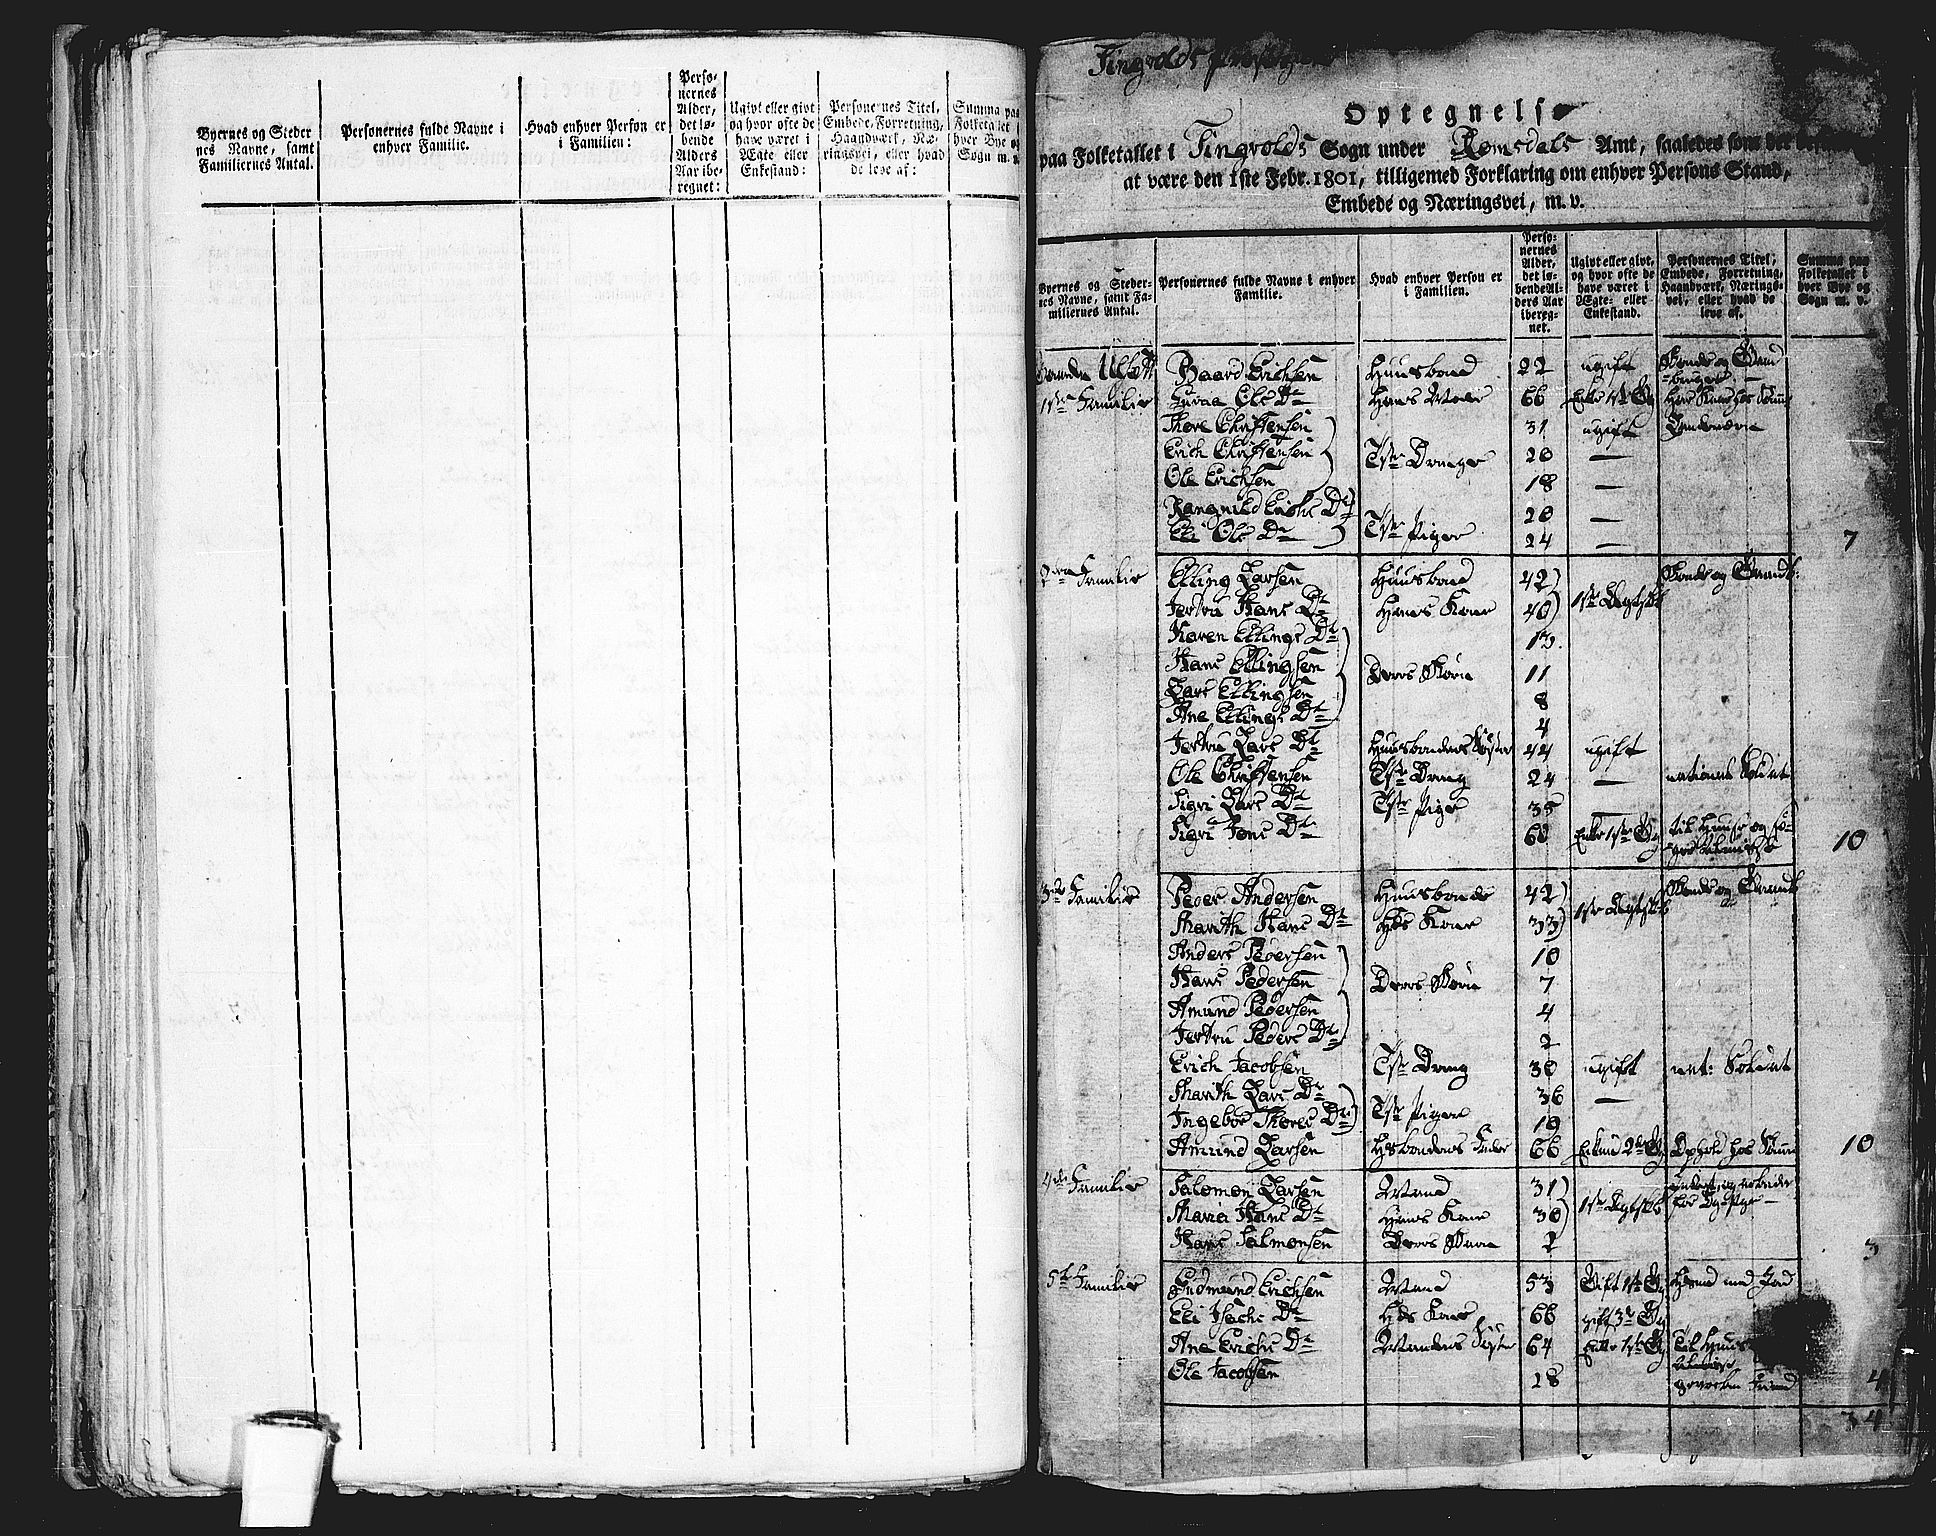 Byernes og Steder
nes Navne, samt
Familiernes Antal.
Personernes fulde Navne i
enhver Familie.
Hvad enhver Person er
i Familien:
Perso-
nernes
Alder,
det lø-
bende
Alders
Aar ibe-
regnet:
Ugivt eller givt
og hvor ofte de
have været i
Ægte eller
Enkestand:
Personernes Titel,
Embede, Forretning,
Haandværk, Næ-
ringsvei, eller hvad
de leve af:
Summa paa
Folketallet i
hver Bye og
Sogn m. v.
Tingvolds
Optegnelse
paa Folketallet i Tingvolds Sogn under Romsdals Amt, saaledes som det
at være den 1ste Febr. 1801, tilligemed Forklaring om enhver Persons Stand,
Embede og Næringsvei, m. v.
Byernes og Steder-
nes Navne, samt Fa-
miliernes Antal.
Personernes fulde Navne i enhver
Familie.
Hvad enhver Person er
i Familien.
Perso-
nernes
Alder,
det lø-
bende Al-
ders Aar
ibereg-
net.
Ugivt eller givt,
og hvor ofte de
have været i
Ægte- eller
Enkestand.
Personernes Titel,
Embede, Forretning,
Haandværk, Nærings-
vei, eller hvad de
leve af.
Summa paa
Folketallet i
hver Bye og
Sogn m. v.
Baard Erichsen Huusbond 22 ugift Bonde og Gaard
1ste Familie Ols Dr Hans Moer 66 Enke 1ste Eg
Thore Christensen 31 ugift
Erich Christensen Tjste Drenge 20 —
Ole Erichsen 18 —
Rangnild Erichs Dr 20 —
Eli Ols Dr Tjste Piger 24 — 7
2den Familie Elling Larsen Huusbond 42 Bonde og Gaardb:
Jertru Hans Dr Hans Kone 40 1ste Ægtsk
Karen Ellings Dr 13
Hans Ellingsen Deres Børn 11
Lars Ellingsen 8
Ane Ellings Dr 4
Jertru Lars Dr Huusbondens Syster 44 ugift
Ole Christensen Tjste Dreng 24 — national Soldat
Sigri Lars Dr Tjste Pige 35 —
Sigri Jons Dr 60 Enke 1ste Eg til Huuse og 10
3de Familie Peder Andersen Huusbonde 42 Bonde og Gaardb
Marith Hans Dr Hs Kone 33 1ste Ægtsk
Anders Pedersen 10
Hans Pedersen Deres Børn 7
Amund Pedersen 4
Jertru Peders Dr 2
Erich Jacobsen Tjste Dreng 30 ugift nat: Soldat
Marith Lars Dr 36 —
Ingebor Thores Dr Tjste Piger 19
Amund Larsen Hsbondens Fader 66 Enkm 2de Eg Ophold hos Sønnen 10
4de Familie Salomon Larsen Mand 31
Maria Hans Dr Hans Kone 30 1ste Ægtsk
Hans Salmonsen Deres Barn 2 3
5te Familie Gudmund Erichsen Mand 53 Gift 1ste Eg Huusmd med Jord
Eli Isachs Dr Hs Kone 66 gift 3de Eg
Ane Erichs Dr Mandens Syster 64 Enke 1ste Eg Til Huus
Ole Jacobsen 18 4
34